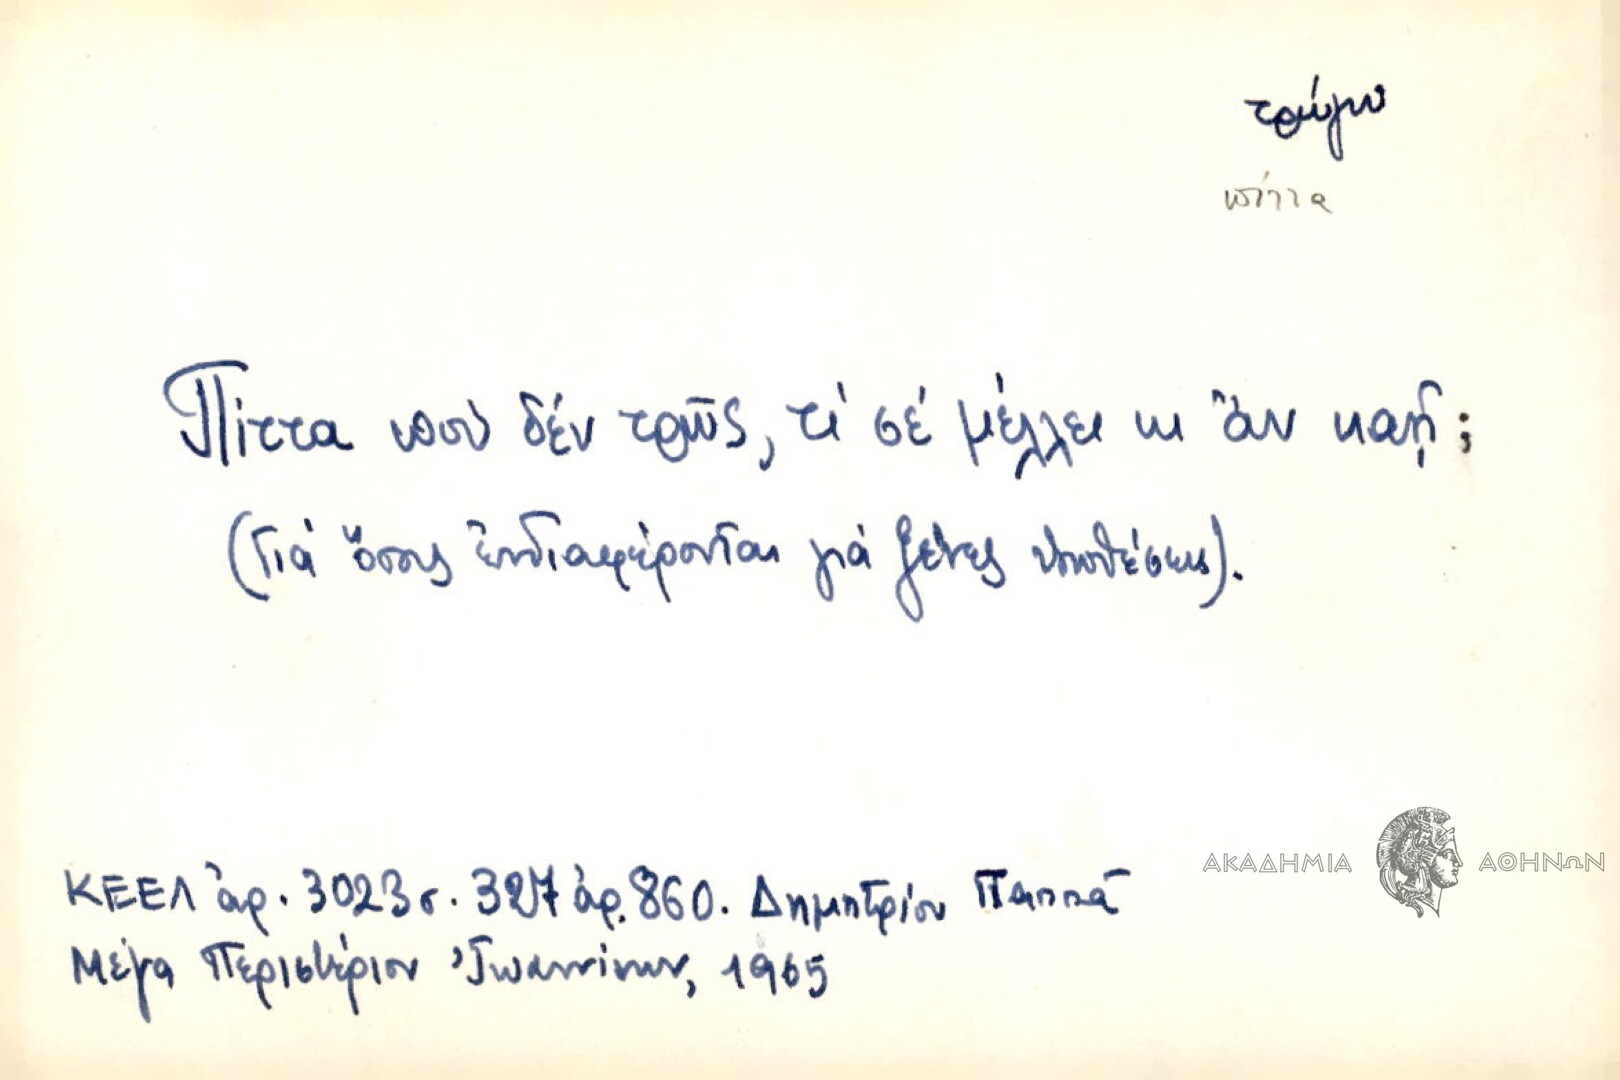 τρώγω
πίττα
Πίττα πού δέν τρῶς, τί σέ μέλλει κι ἄν καῇ;
(Γιά ὅσους ἐνδιαφέρονται γιά ξένες ὑποθέσεις).
ΑΚΑΔΗΜΙΑ ΑΘΗΝΩΝ
ΚΕΕΛ ἀρ. 3023 σ. 327 ἀρ. 860. Δημητρίου Παππᾶ
Μέγα Περιστέριον Ἰωαννίνων, 1965